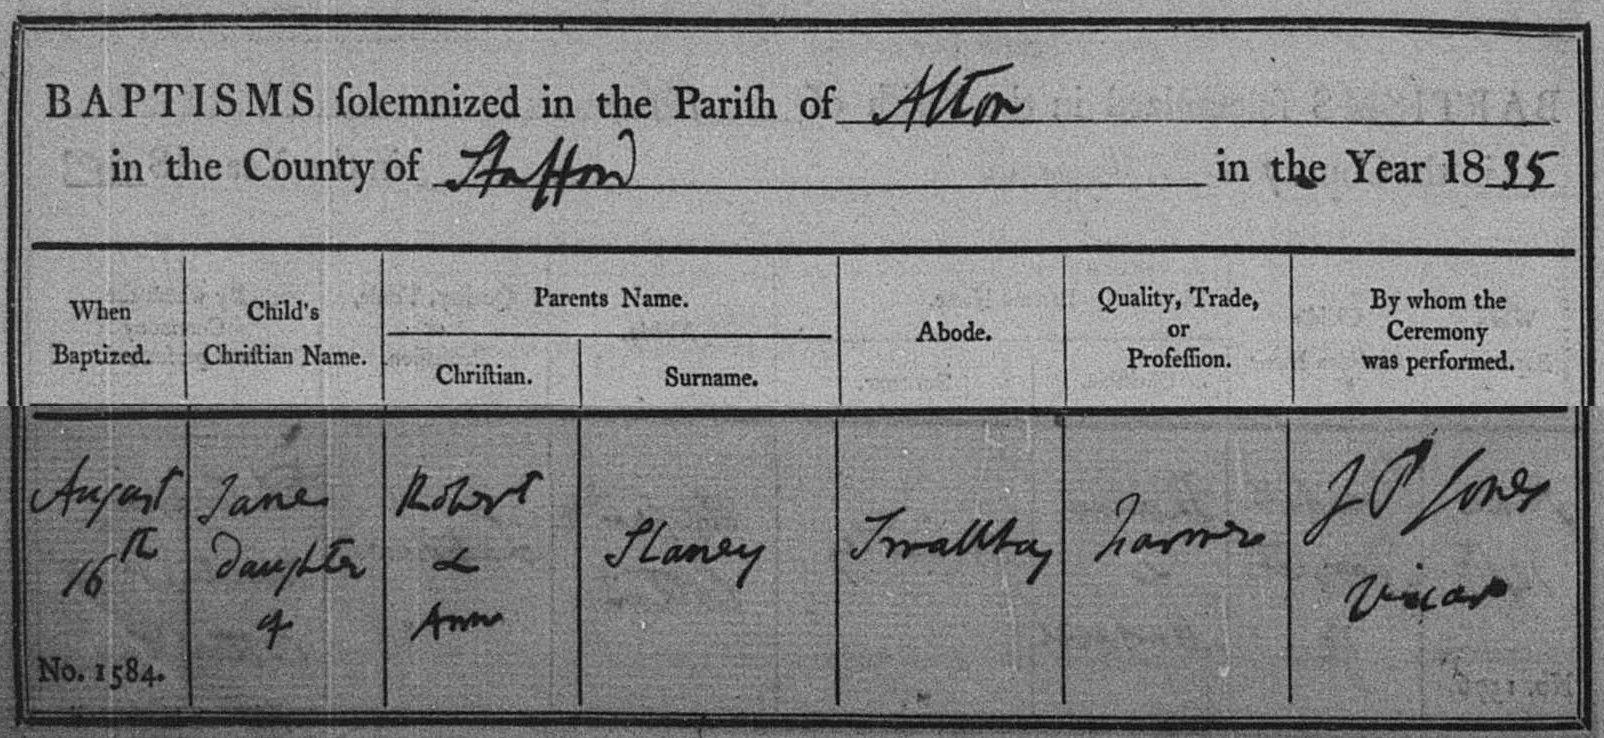 BAPTISMS ſolemnized in the Pariſh of Alton
in the County of Stafford in the Year 1835
When Baptized.
Child's Chriſtian Name.
Parents Name.
Chriſtian.
Surname.
Abode.
Quality, Trade, or Profeſſion.
By whom the Ceremony was performed.
August
16th
No. 1584.
Jane
Daughter
of
Robert
&
Anne
Slaney
Farmer
J P Jones
Vicar